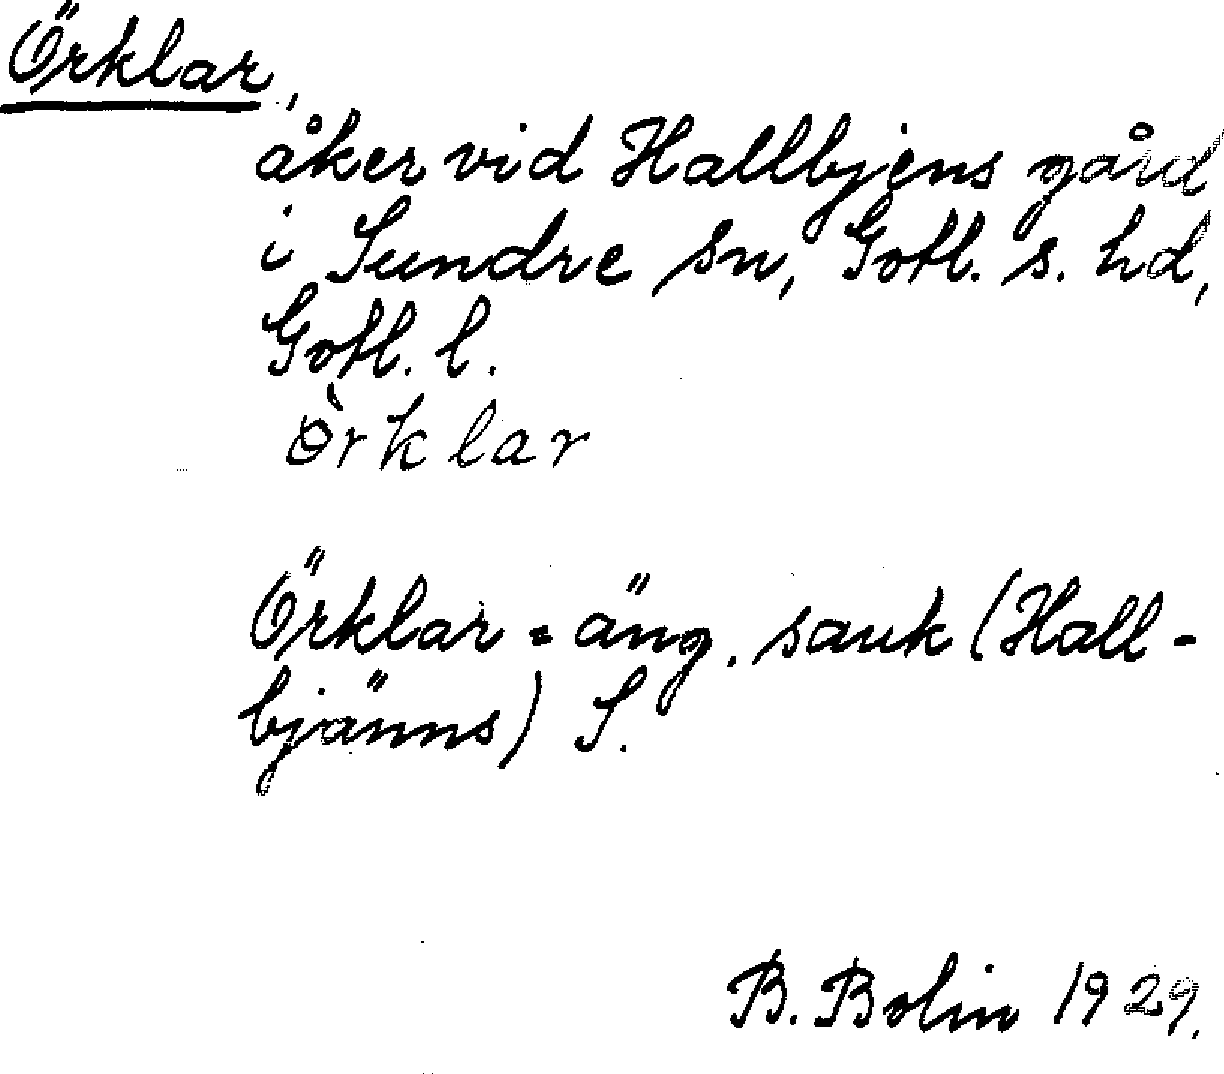 Örklar,
åker vid Hallbjens gård
i Sundre sn, Gotl. s. hd,
Gotl. l.
Ɵ̀rklar
Örklar = äng. sauk (Hall-
bjänns) S.
B. Bolin 1929.